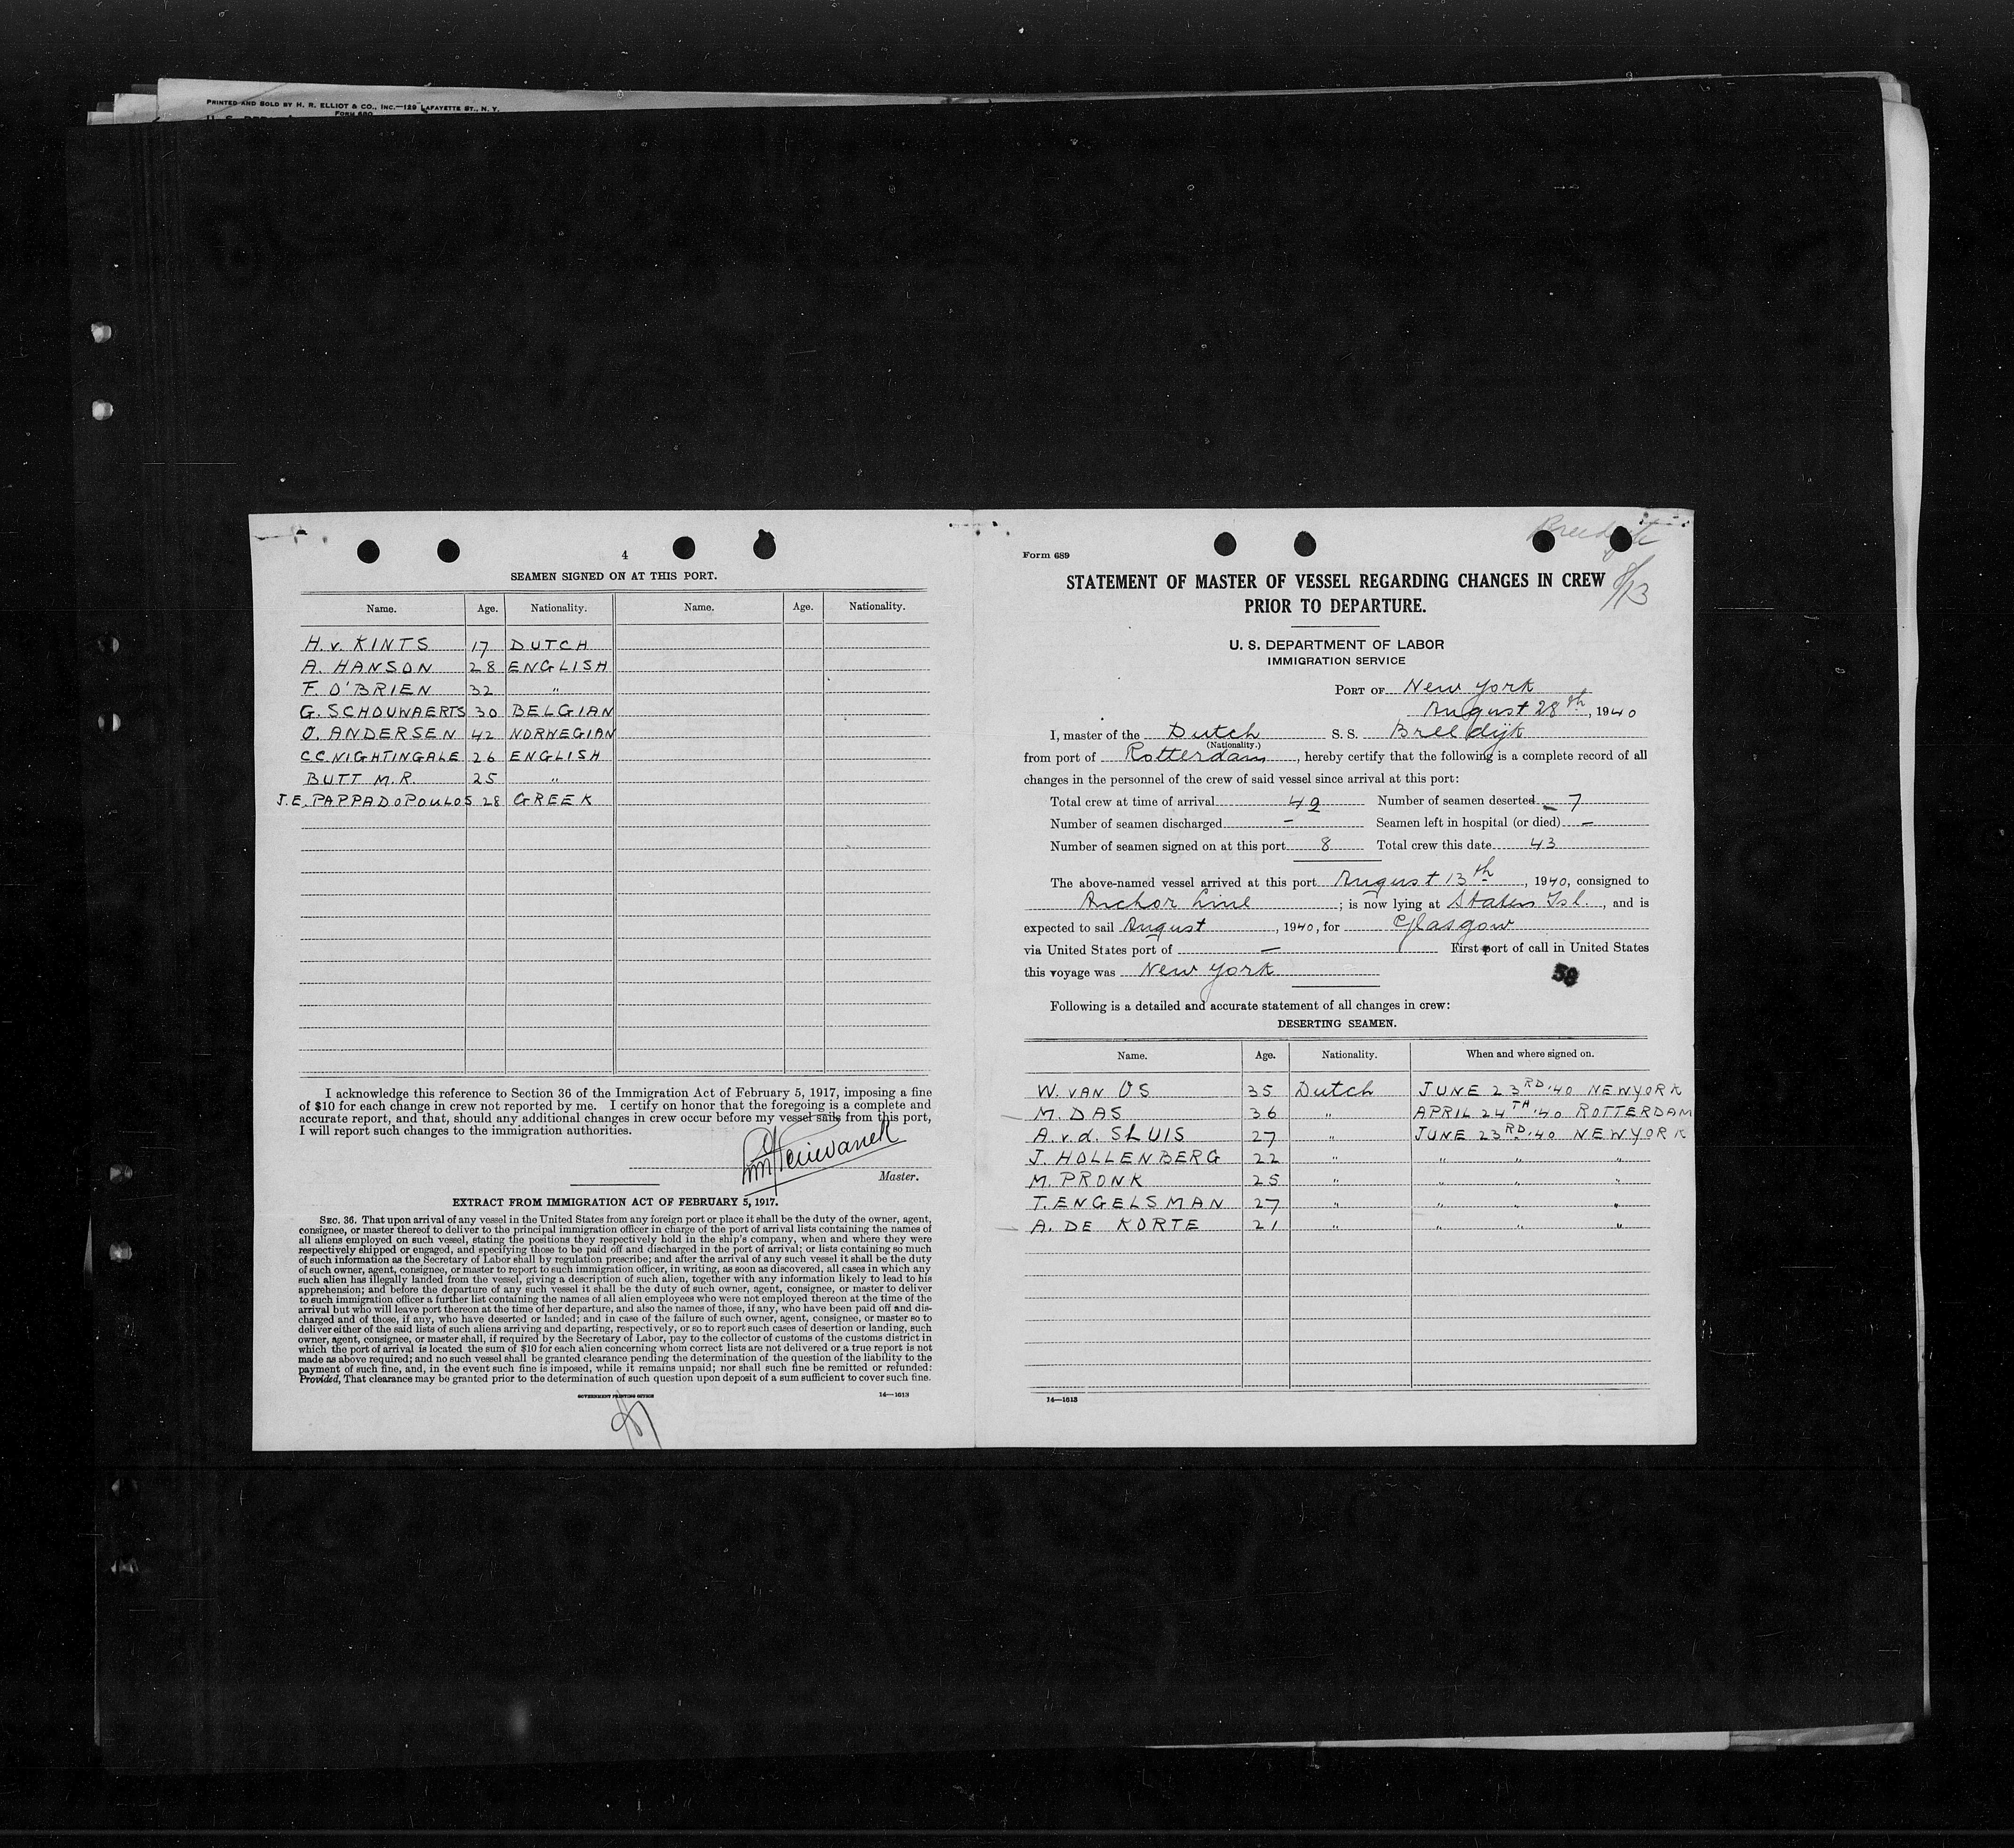 PRINTED AND SOLD BY H. R. ELLIOT & CO., INC.—129 LAFAYETTE ST., N. Y.
FORM 680
4
SEAMEN SIGNED ON AT THIS PORT.
Name. Age. Nationality. Name. Age. Nationality.
H. v. KINTS 17 DUTCH
A. HANSON 28 ENGLISH
F. O'BRIEN 32 "
G. SCHOUWAERTS 30 BELGIAN
O. ANDERSEN 42 NORWEGIAN
C C NIGHTINGALE 26 ENGLISH
BUTT M.R. 25 "
J.E. PAPPADOPOULOS 28 GREEK
I acknowledge this reference to Section 36 of the Immigration Act of February 5, 1917, imposing a fine
of $10 for each change in crew not reported by me. I certify on honor that the foregoing is a complete and
accurate report, and that, should any additional changes in crew occur before my vessel sails from this port,
I will report such changes to the immigration authorities.
Master.
EXTRACT FROM IMMIGRATION ACT OF FEBRUARY 5, 1917.
SEC. 36. That upon arrival of any vessel in the United States from any foreign port or place it shall be the duty of the owner, agent,
consignee, or master thereof to deliver to the principal immigration officer in charge of the port of arrival lists containing the names of
all aliens employed on such vessel, stating the positions they respectively hold in the ship's company, when and where they were
respectively shipped or engaged, and specifying those to be paid off and discharged in the port of arrival; or lists containing so much
of such information as the Secretary of Labor shall by regulation prescribe; and after the arrival of any such vessel it shall be the duty
of such owner, agent, consignee, or master to report to such immigration officer, in writing, as soon as discovered, all cases in which any
such alien has illegally landed from the vessel, giving a description of such alien, together with any information likely to lead to his
apprehension; and before the departure of any such vessel it shall be the duty of such owner, agent, consignee, or master to deliver
to such immigration officer a further list containing the names of all alien employees who were not employed thereon at the time of the
arrival but who will leave port thereon at the time of her departure, and also the names of those, if any, who have been paid off and dis-
charged and of those, if any, who have deserted or landed; and in case of the failure of such owner, agent, consignee, or master so to
deliver either of the said lists of such aliens arriving and departing, respectively, or so to report such cases of desertion or landing, such
owner, agent, consignee, or master shall, if required by the Secretary of Labor, pay to the collector of customs of the customs district in
which the port of arrival is located the sum of $10 for each alien concerning whom correct lists are not delivered or a true report is not
made as above required; and no such vessel shall be granted clearance pending the determination of the question of the liability to the
payment of such fine, and, in the event such fine is imposed, while it remains unpaid; nor shall such fine be remitted or refunded:
Provided, That clearance may be granted prior to the determination of such question upon deposit of a sum sufficient to cover such fine.
GOVERNMENT PRINTING OFFICE 14—1613
Breedijk
8/13
Form 689
STATEMENT OF MASTER OF VESSEL REGARDING CHANGES IN CREW
PRIOR TO DEPARTURE.
U. S. DEPARTMENT OF LABOR
IMMIGRATION SERVICE
PORT OF New York
August 28th, 1940
I, master of the Dutch S. S. Breedijk
(Nationality.)
from port of Rotterdam, hereby certify that the following is a complete record of all
changes in the personnel of the crew of said vessel since arrival at this port:
Total crew at time of arrival 42 Number of seamen deserted 7
Number of seamen discharged – Seamen left in hospital (or died) –
Number of seamen signed on at this port 8 Total crew this date 43
The above-named vessel arrived at this port August 13th, 1940, consigned to
Anchor Line; is now lying at Staten Isl., and is
expected to sail August, 1940, for Glasgow
via United States port of – First port of call in United States
this voyage was New York
Following is a detailed and accurate statement of all changes in crew:
DESERTING SEAMEN.
Name. Age. Nationality. When and where signed on.
W. VAN OS 35 Dutch JUNE 23RD '40 NEWYORK
M. DAS 36 " APRIL 24TH '40 ROTTERDAM
A. v. d. SLUIS 27 " JUNE 23RD '40 NEWYORK
J. HOLLENBERG 22 " " " "
M. PRONK 25 " " " "
T. ENGELSMAN 27 " " " "
A. DE KORTE 21 " " " "
14—1613